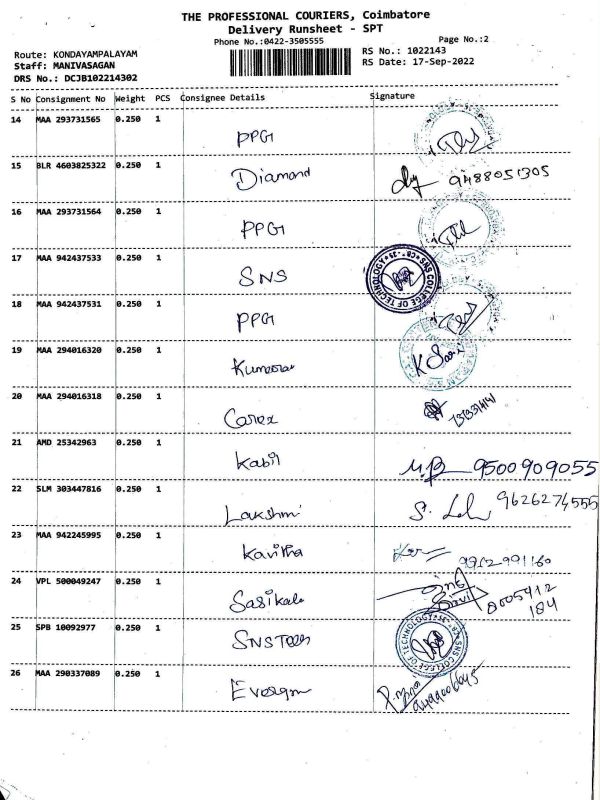 THE PROFESSIONAL COURIERS, Coimbatore
Delivery Runsheet - SPT
Phone No.:0422-3505555 Page No.:2
Route: KONDAYAMPALAYAM RS No.: 1022143
Staff: MANIVASAGAN RS Date: 17-Sep-2022
DRS No.: DCJB102214302
S No Consignment No Weight PCS Consignee Details Signature
14 MAA 293731565 0.250 1 PPG
15 BLR 4603825322 0.250 1 Diamond 9488051305
16 MAA 293731564 0.250 1 PPG
17 MAA 942437533 0.250 1 SNS SNS COLLEGE OF TECHNOLOGY CB-35
18 MAA 942437531 0.250 1 PPG
19 MAA 294016320 0.250 1
20 MAA 294016318 0.250 1
21 AMD 25342963 0.250 1 Kabil 9500909055
22 SLM 303447816 0.250 1 Lakshmi 9626274555
23 MAA 942245995 0.250 1 Kavitha
24 VPL 500049247 0.250 1 Sasikala
25 SPB 10092977 0.250 1 SNS COLLEGE OF TECHNOLOGY CB-35
26 MAA 290337089 0.250 1